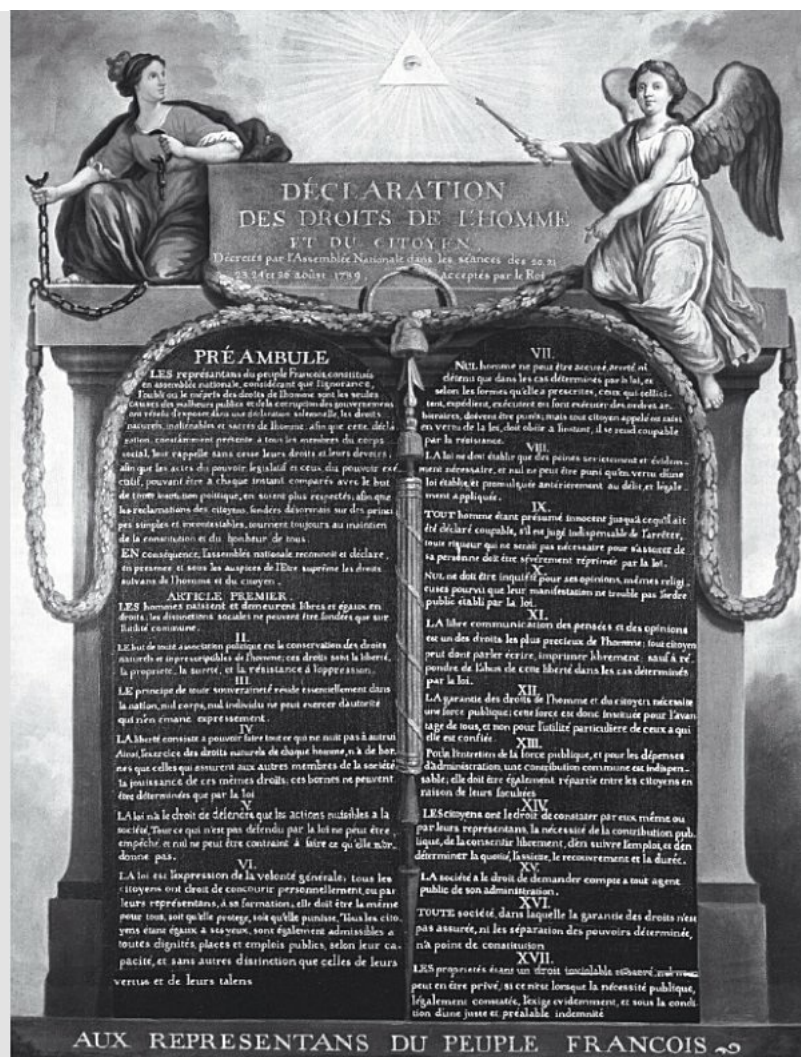 DÉCLARATION
DES DROITS DE L'HOMME
ET DU CITOYEN,
Décretés par l'Assemblée Nationale dans les séances des 20. 21
23. 24 et 26 août 1789, acceptés par le Roi
PRÉAMBULE
LES représentans du peuple François, constitués
en assemblée nationale, considérant que l'ignorance,
l'oubli ou le mépris des droits de l'homme sont les seules
causes des malheurs publics et de la corruption des gouvernemens
ont résolu d'exposer dans une déclaration solemnelle, les droits
naturels, inaliénables et sacrés de l'homme: afin que cette décla
ration, constamment présente à tous les membres du corps
social, leur rappelle sans cesse leurs droits et leurs devoirs;
afin que les actes du pouvoir législatif et ceux du pouvoir exé
cutif, pouvant être à chaque instant comparés avec le but
de toute institution politique, en soient plus respectés; afin que
les réclamations des citoyens, fondées désormais sur des princi
pes simples et incontestables, tournent toujours au maintien
de la constitution et du bonheur de tous.
EN conséquence, l'assemblée nationale reconnoit et déclare,
en presence et sous les auspices de l'Etre suprême les droits
suivans de l'homme et du citoyen.
ARTICLE PREMIER.
LES hommes naissent et demeurent libres et égaux en
droits; les distinctions sociales ne peuvent être fondées que sur
l'utilité commune.
II.
LE but de toute association politique est la conservation des droits
naturels et imprescriptibles de l'homme; ces droits sont la liberté,
la propriété, la sureté, et la résistance à l'oppression.
III.
LE principe de toute souveraineté réside essentiellement dans
la nation, nul corps, nul individu ne peut exercer d'autorité
qui n'en émane expressement.
IV.
LA liberté consiste a pouvoir faire tout ce qui ne nuit pas à autrui
Ainsi, l'exercice des droits naturels de chaque homme, n'a de bor-
nes que celles qui assurent aux autres membres de la société
la jouissance de ces mêmes droits; ces bornes ne peuvent
être déterminées que par la loi
V.
LA loi n'a le droit de défendre que les actions nuisibles a la
société. Tout ce qui n'est pas défendu par la loi ne peut être
empêché, et nul ne peut être contraint à faire ce qu'elle n'or-
donne pas.
VI.
LA loi est l'expression de la volonté générale; tous les
citoyens ont droit de concourir personnellement, ou par
leurs représentans, à sa formation; elle doit être la même
pour tous, soit qu'elle protege, soit qu'elle punisse. Tous les cito
yens étant égaux à ses yeux, sont également admissibles a
toutes dignités, places et emplois publics, selon leur ca-
pacité, et sans autres distinction que celles de leurs
vertus et de leurs talens
VII.
NUL homme ne peut être accusé, arreté, ni
détenu que dans les cas déterminés par la loi, et
selon les formes qu'elle a prescrites, ceux qui sollici-
tent, expédient, exécutent ou font exécuter des ordres ar-
bitraires, doivent être punis; mais tout citoyen appelé ou saisi
en vertu de la loi, doit obéir a l'instant, il se rend coupable
par la résistance.
VIII.
LA loi ne doit établir que des peines strictement et évidem-
ment nécessaire, et nul ne peut être puni qu'en vertu d'une
loi établie, et promulguée antérierement au délit, et légale-
ment appliquée.
IX.
TOUT homme étant présumé innocent jusqu'a cequ'il ait
été déclaré coupable, s'il est jugé indispensable de l'arrêter,
toute rigueur qui ne serait pas nécessaire pour s'assurer de
sa personne doit être sévèrement réprimée par la loi.
X.
NUL ne doit être inquiété pour ses opinions, mêmes religi
euses pourvu que leur manifestation ne trouble pas l'ordre
public établi par la loi.
XI.
LA libre communication des pensées et des opinions
est un des droits les plus precieux de l'homme; tout citoyen
peut dont parler écrire, imprimer librement: sauf à ré
pondre de l'abus de cette liberté dans les cas déterminés
par la loi.
XII.
LA garantie des droits de l'homme et du citoyen nécessite
une force publique; cette force est donc instituée pour l'avan
tage de tous, et non pour l'utilité particuliere de ceux a qui
elle est confiée.
XIII.
Pour l'entretien de la force publique, et pour les dépenses
d'administration, une contribution commune est indispen-
sable; elle doit être également répartie entre les citoyens en
raison de leurs facultées
XIV.
LES citoyens ont le droit de constater par eux même ou
par leurs représentans, la nécessité de la contribution pub-
lique, de la consentir librement, d'en suivre l'emploi, et d'en
déterminer la quotité, l'assiette, le recouvrement et la durée.
XV.
LA société a le droit de demander compte a tout agent
public de son administration.
XVI.
TOUTE société, dans laquelle la garantie des droits n'est
pas assurée, ni les séparation des pouvoirs déterminée,
n'a point de constitution
XVII.
LES propriétés étant un droit inviolable et sacré, nul ne
peut en être privé, si ce n'est lorsque la nécessité publique,
légalement constatée, l'exige evidemment, et sous la condi
tion d'une juste et préalable indemnité
AUX REPRESENTANS DU PEUPLE FRANCOIS